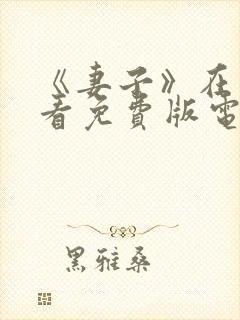 《妻子》在
看免費版電
黑雅桑